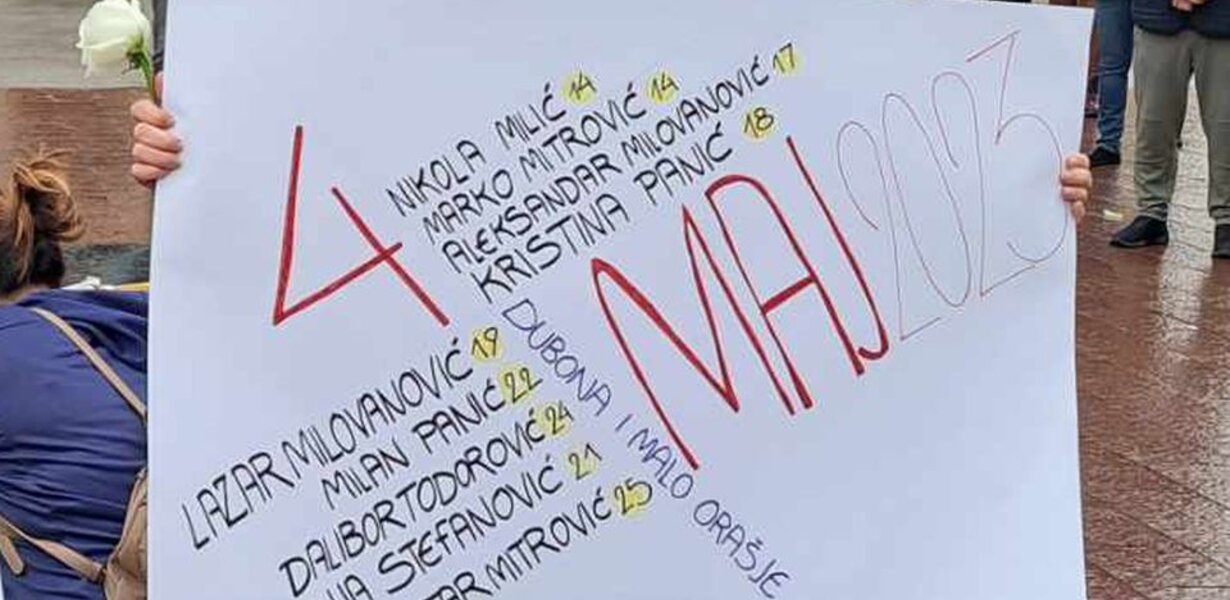 4 MAJ 2023
NIKOLA MILIĆ 14
MARKO MITROVIĆ 14
ALEKSANDAR MILOVANOVIĆ 17
KRISTINA PANIĆ 18
DUBONA I MALO ORAŠJE
LAZAR MILOVANOVIĆ 19
MILAN PANIĆ 22
DALIBOR TODOROVIĆ 24
STEFANOVIĆ 21
MITROVIĆ 25